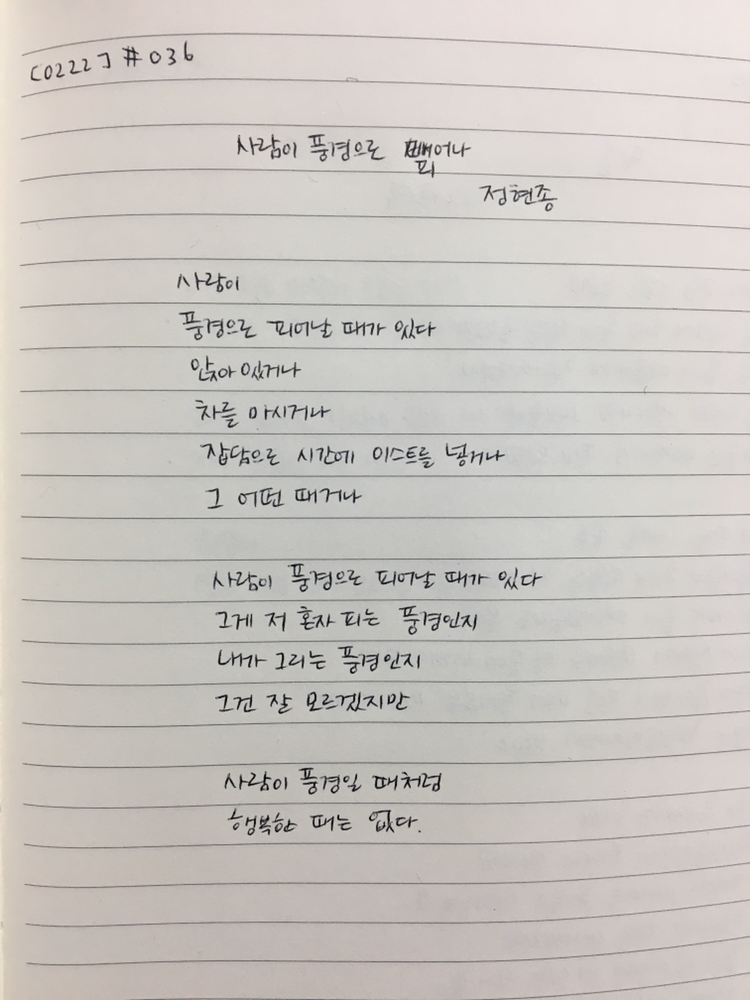 [0222] #036
사람이 풍경으로 피어나
정현종
사람이
풍경으로 피어날 때가 있다
앉아 있거나
차를 마시거나
잡담으로 시간에 이스트를 넣거나
그 어떤 때거나
사람이 풍경으로 피어날 때가 있다
그게 저 혼자 피는 풍경인지
내가 그리는 풍경인지
그건 잘 모르겠지만
사람이 풍경일 때처럼
행복한 때는 없다.